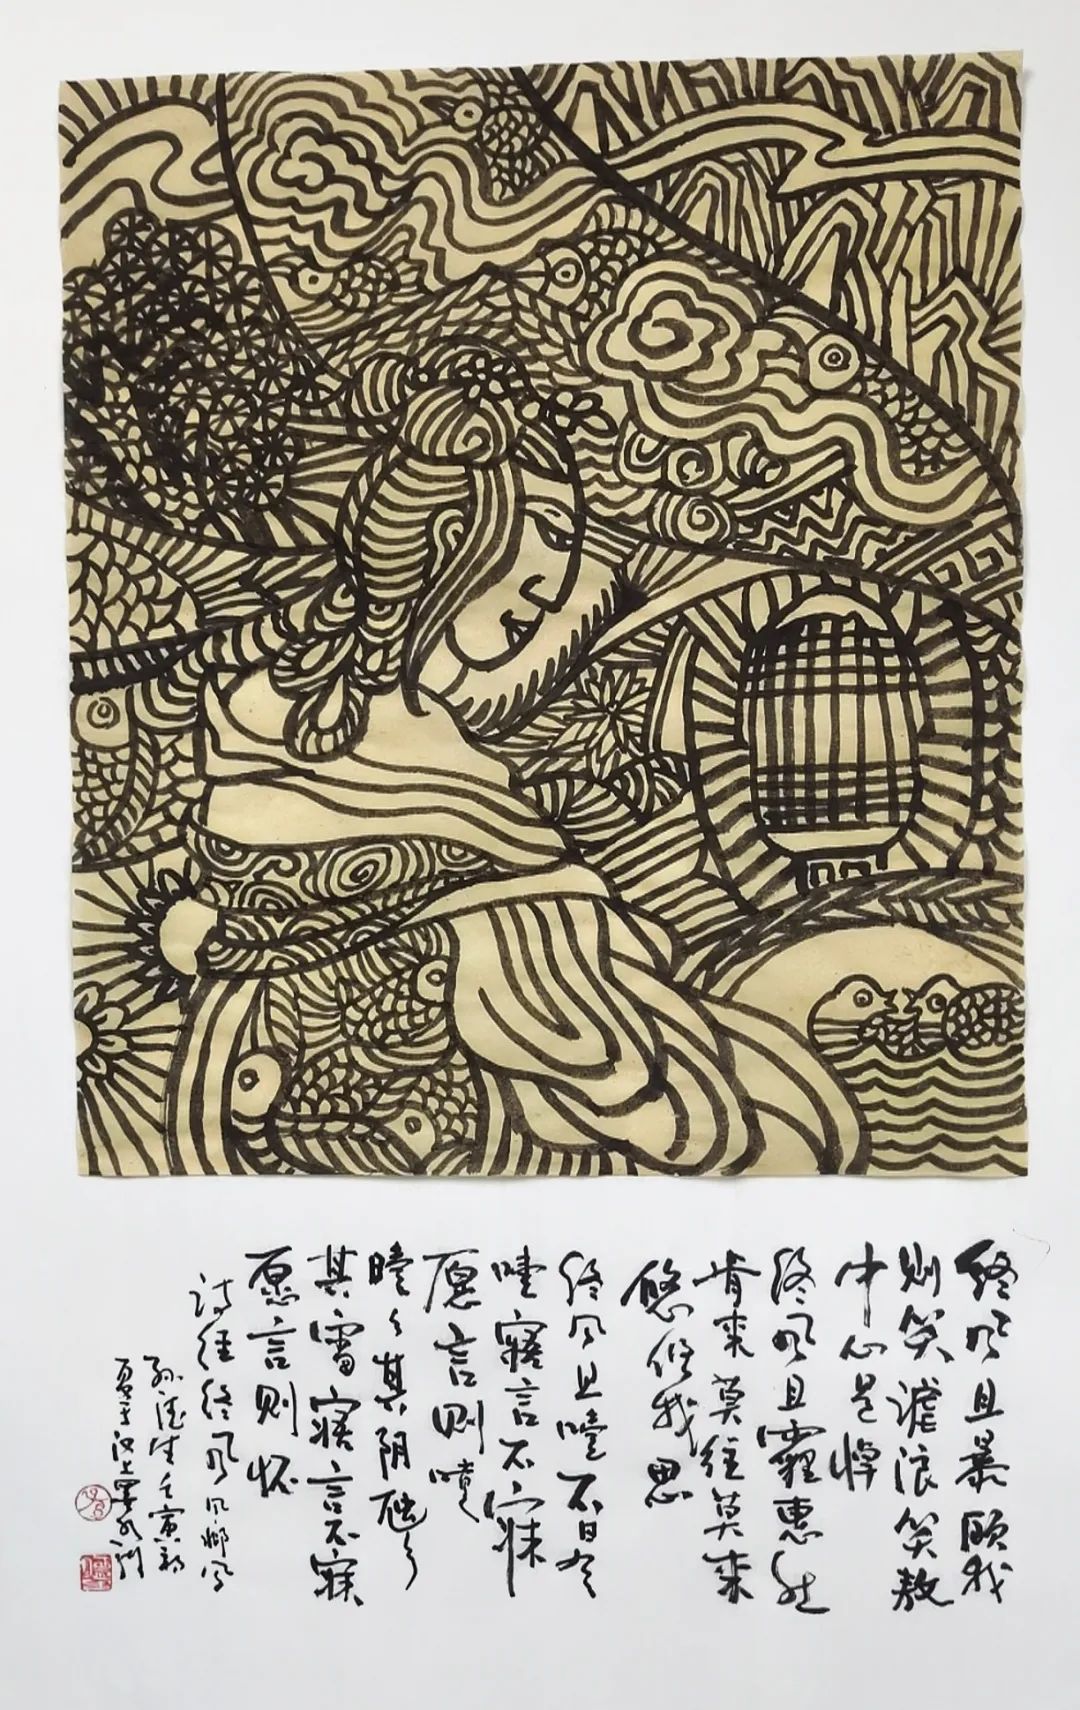 终风且暴顾我
则笑谑浪笑敖
中心是悼
终风且霾惠然
肯来莫往莫来
悠悠我思
终风且曀不日有
曀寤言不寐
愿言则嚏
曀々其阴虺々
其雷寤言不寐
愿言则怀
诗经终风 风邶风
孙德生壬寅初
夏于汉上